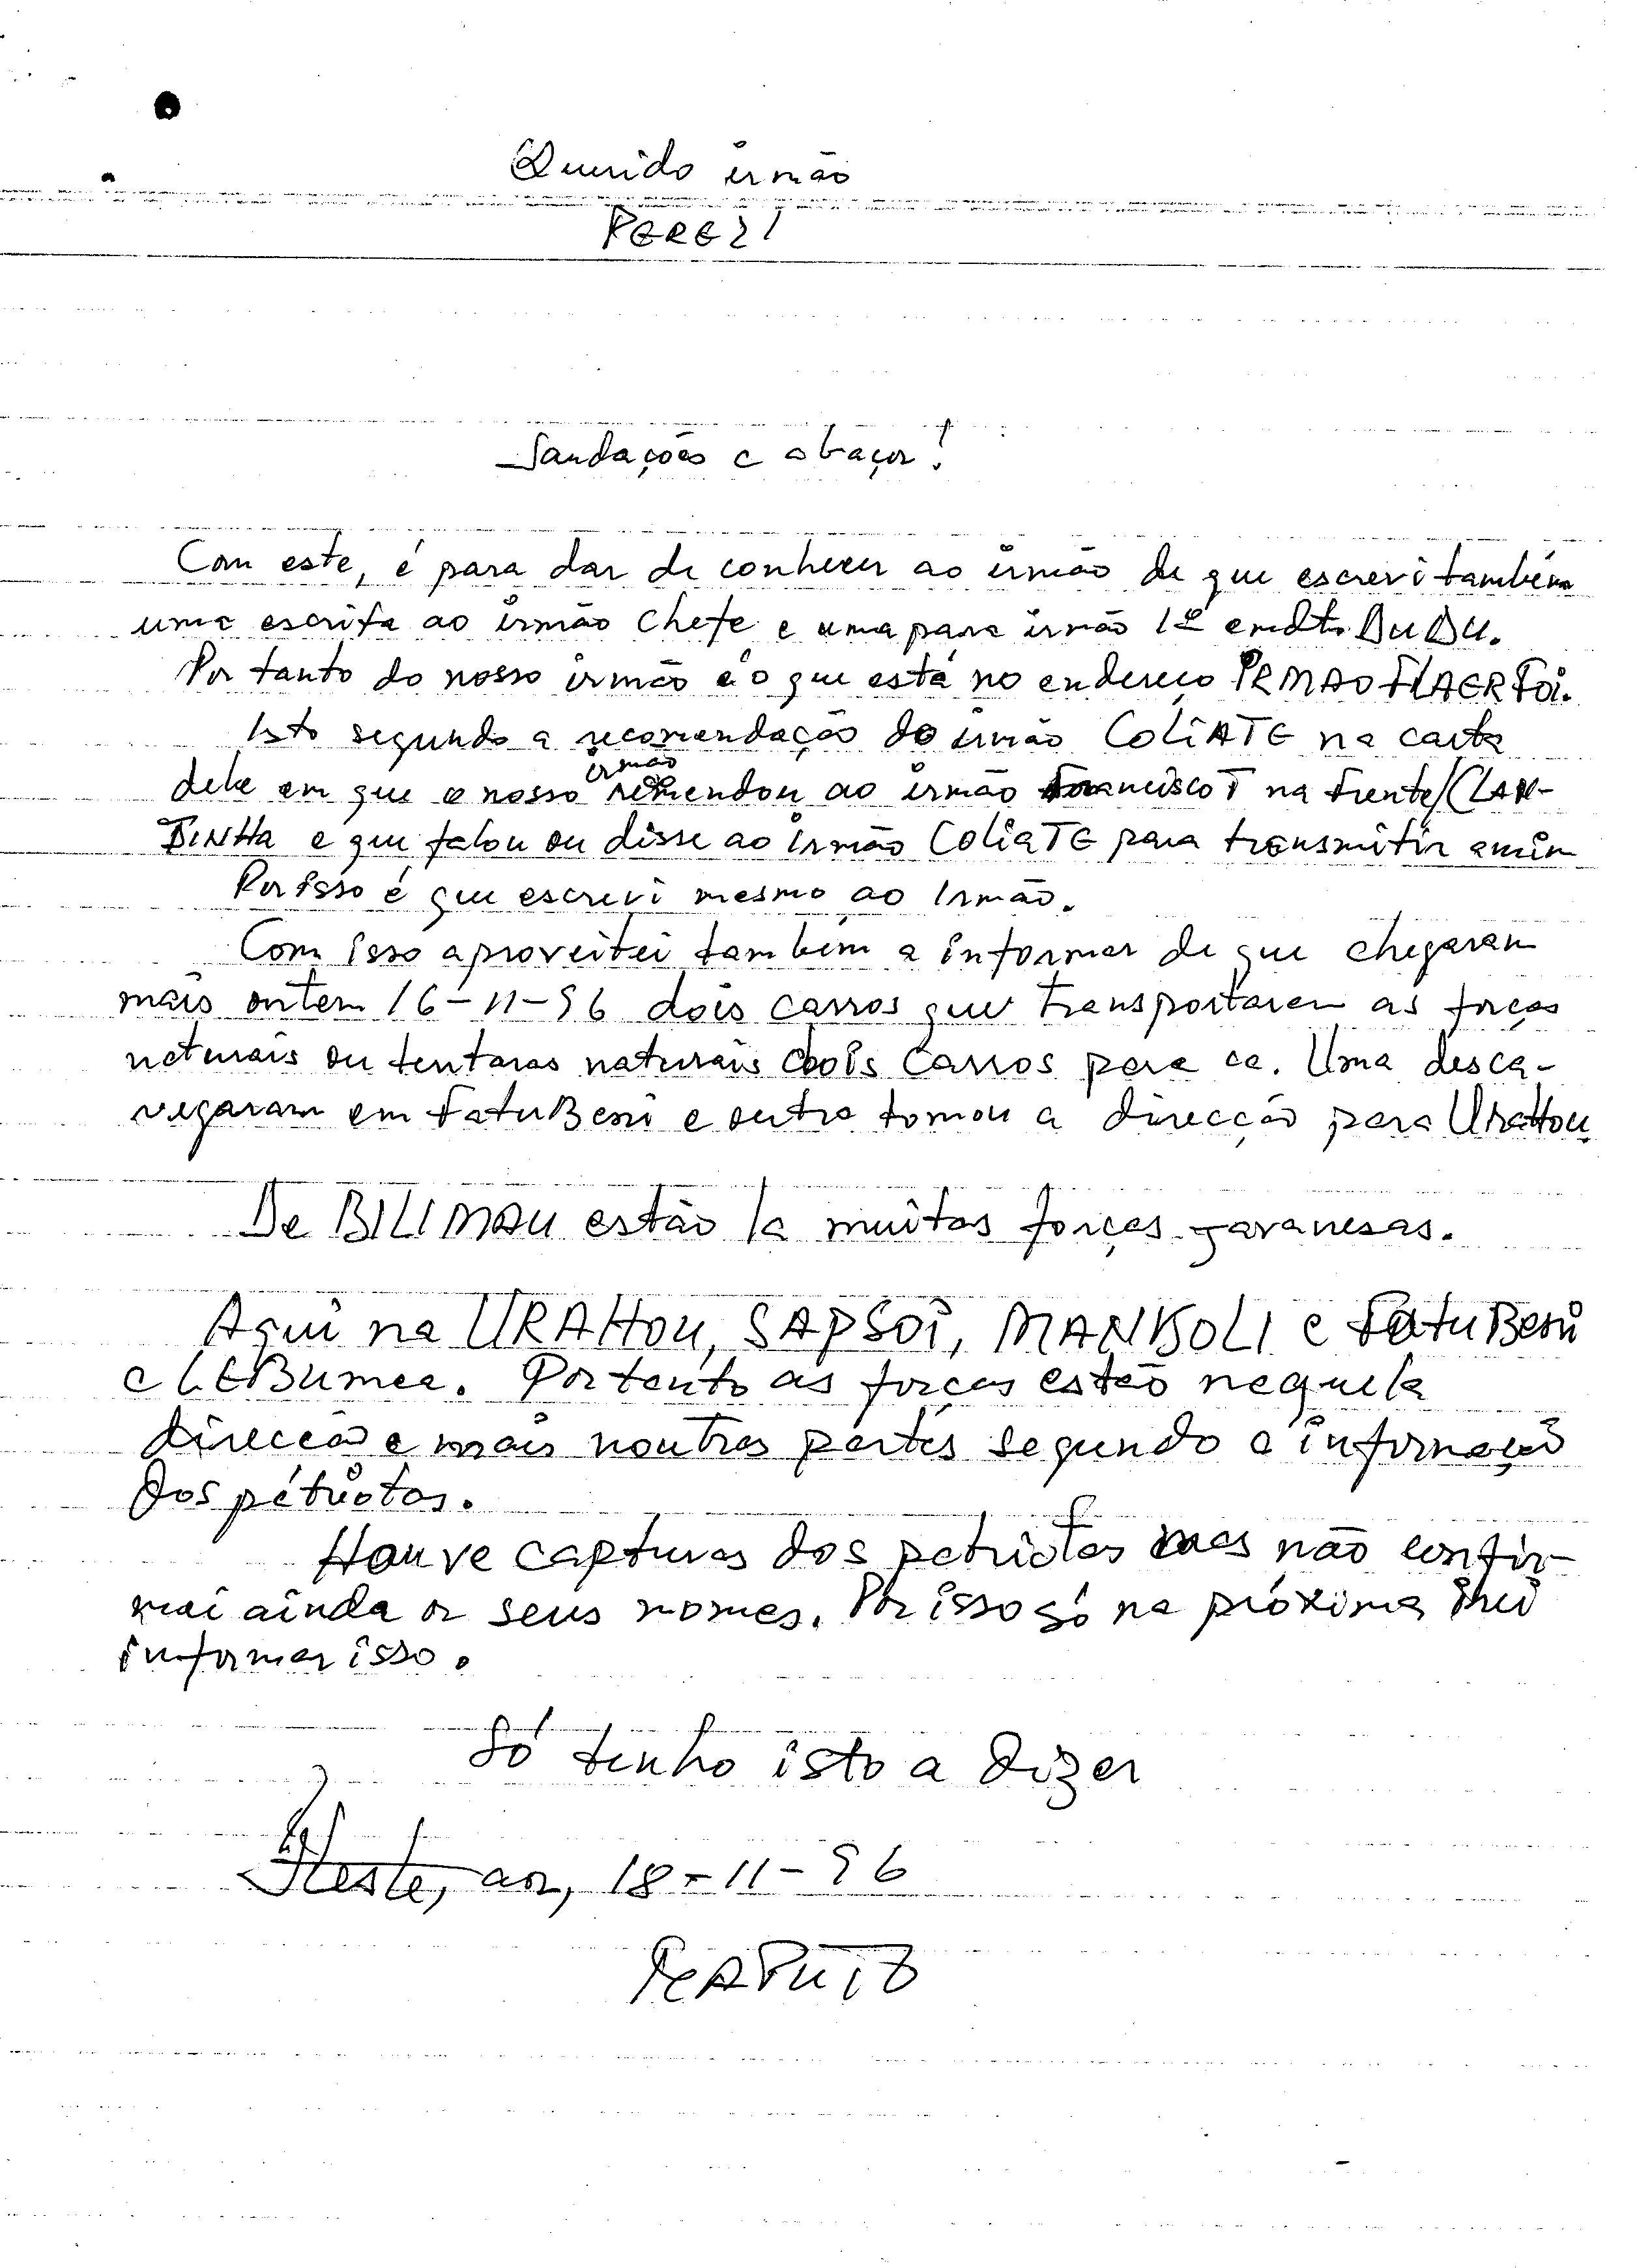 Querido irmão
PEREZI
Saudações e abaços!
Com este, é para dar de conhecer ao irmão de que escrevi também
uma escrita ao irmão Chefe e uma para irmão 1º cmdt. DuDU.
Portanto do nosso irmão é o que está no endereço
Isto segundo a recomendação do irmão COLiATE na carta
dele em que o nosso irmão ao irmão Francisco T na Frente/(CLAN-
DINHA e que falou ou disse ao irmão COLiATE para transmitir amim
Porisso é que escrevi mesmo ao Irmão.
Com isso aproveitei também a informar de que chegaram
mais ontem 16-11-96 dois carros que transportaram as forças
naturais ou tentaras naturais dois carros para ca. Uma desca-
regaram em FatuBessi e outra tomou a direcção para UraHou
De BILIMAU estão la muitas forças javanesas.
Aqui na URAHou, SAPSOi, MANKOLI e FatuBessi
e LEBumea. Portanto as forças estão naquela
direcção e mais noutras partes segundo a informação
dos patriotas.
Houve capturas dos patriotas mas não confir-
mei ainda os seus nomes. Por isso só na próxima irei
informar isso.
Só tenho isto a dizer
Neste, aos, 18-11-96